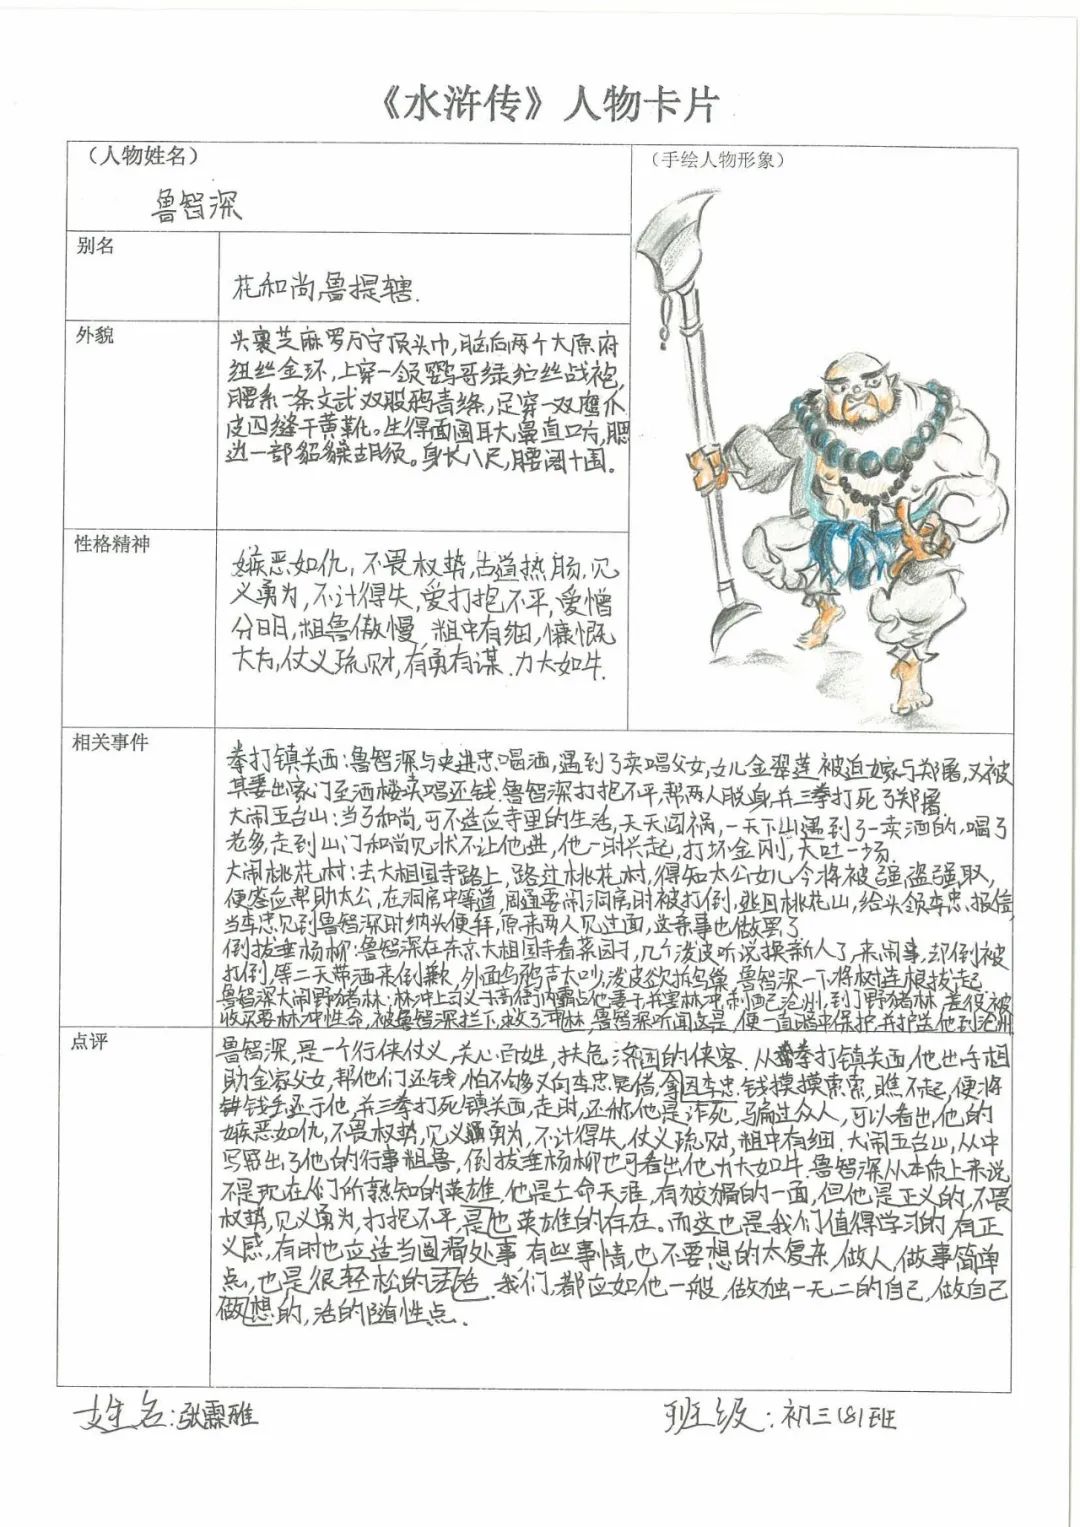 《水浒传》人物卡片
（人物姓名）
鲁智深
（手绘人物形象）
别名
花和尚,鲁提辖.
外貌
头裹芝麻罗万字顶头巾,脑后两个太原府
纽丝金环,上穿一领鹦哥绿纻丝战袍,
腰系一条文武双股鸦青绦,足穿一双鹰爪
皮四缝干黄靴。生得面圆耳大,鼻直口方,腮
边一部貉𧳅胡须。身长八尺,腰阔十围.
性格精神
嫉恶如仇, 不畏权势,古道热肠.见
义勇为,不计得失,爱打抱不平,爱憎
分明,粗鲁傲慢,粗中有细,慷慨
大方,仗义疏财,有勇有谋.力大如牛.
相关事件
拳打镇关西:鲁智深与史进忠喝酒,遇到了卖唱父女,女儿金翠莲被迫嫁与郑屠,又被
其妻出家门至酒楼卖唱还钱.鲁智深打抱不平,帮两人脱身,并三拳打死了郑屠.
大闹五台山:当了和尚,可不适应寺里的生活,天天闯祸,一天下山遇到了一卖酒的,喝了
老多,走到山门和尚见状不让他进,他一时兴起,打坏金刚,大吐一场.
大闹桃花村:去大相国寺路上,路过桃花村,得知太公女儿今将被强盗强取,
便答应帮助太公,在洞房中等道,周通要闹洞房时被打倒,逃回桃花山,给头领李忠报信,
当李忠见到鲁智深时纳头便拜,原来两人见过面,这亲事也做罢了
倒拔垂杨柳:鲁智深在东京大相国寺看菜园子,几个泼皮听说换新人了,来闹事,却倒被
打倒,等二天带酒来倒歉,外面乌鸦声大吵,泼皮欲拆鸟巢,鲁智深一下将树连根拔起.
鲁智深大闹野猪林:林冲上司义子高衙内霸占他妻子,并害林冲刺配沧州,到了野猪林,差役被
收买要林冲性命,被鲁智深拦下,救了冲林,鲁智深听闻这是,便一直暗中保护,并护送他到沧州
点评
鲁智深,是一个行侠仗义,关心百姓,扶危济困的侠客.从拳打镇关西,他出手相
助金家父女,帮他们还钱,怕不够又向李忠见借,拿因李忠钱摸摸索索,瞧不起,便将
钱丢还于他,并三拳打死镇关西,走时,还称他是诈死,骗过众人,可以看出,他的
嫉恶如仇,不畏权势,见义勇为,不计得失,仗义疏财,粗中有细.大闹五台山,从中
写出了他的行事粗鲁,倒拔垂杨柳也可看出他力大如牛.鲁智深从本质上来说
不是现在们所熟知的英雄.他是亡命天涯,有狡猾的一面,但他是正义的,不畏
权势,见义勇为,打抱不平,是他英雄的存在。而这也是我们值得学习的,有正
义感,有时也应适当圆滑处事,有些事情,也不要想的太复杂,做人,做事简单
点,也是很轻松的生活.我们,都应如他一般,做独一无二的自己,做自己
做想的,活的随性点.
姓名:张霖雅
班级:初三(8)班